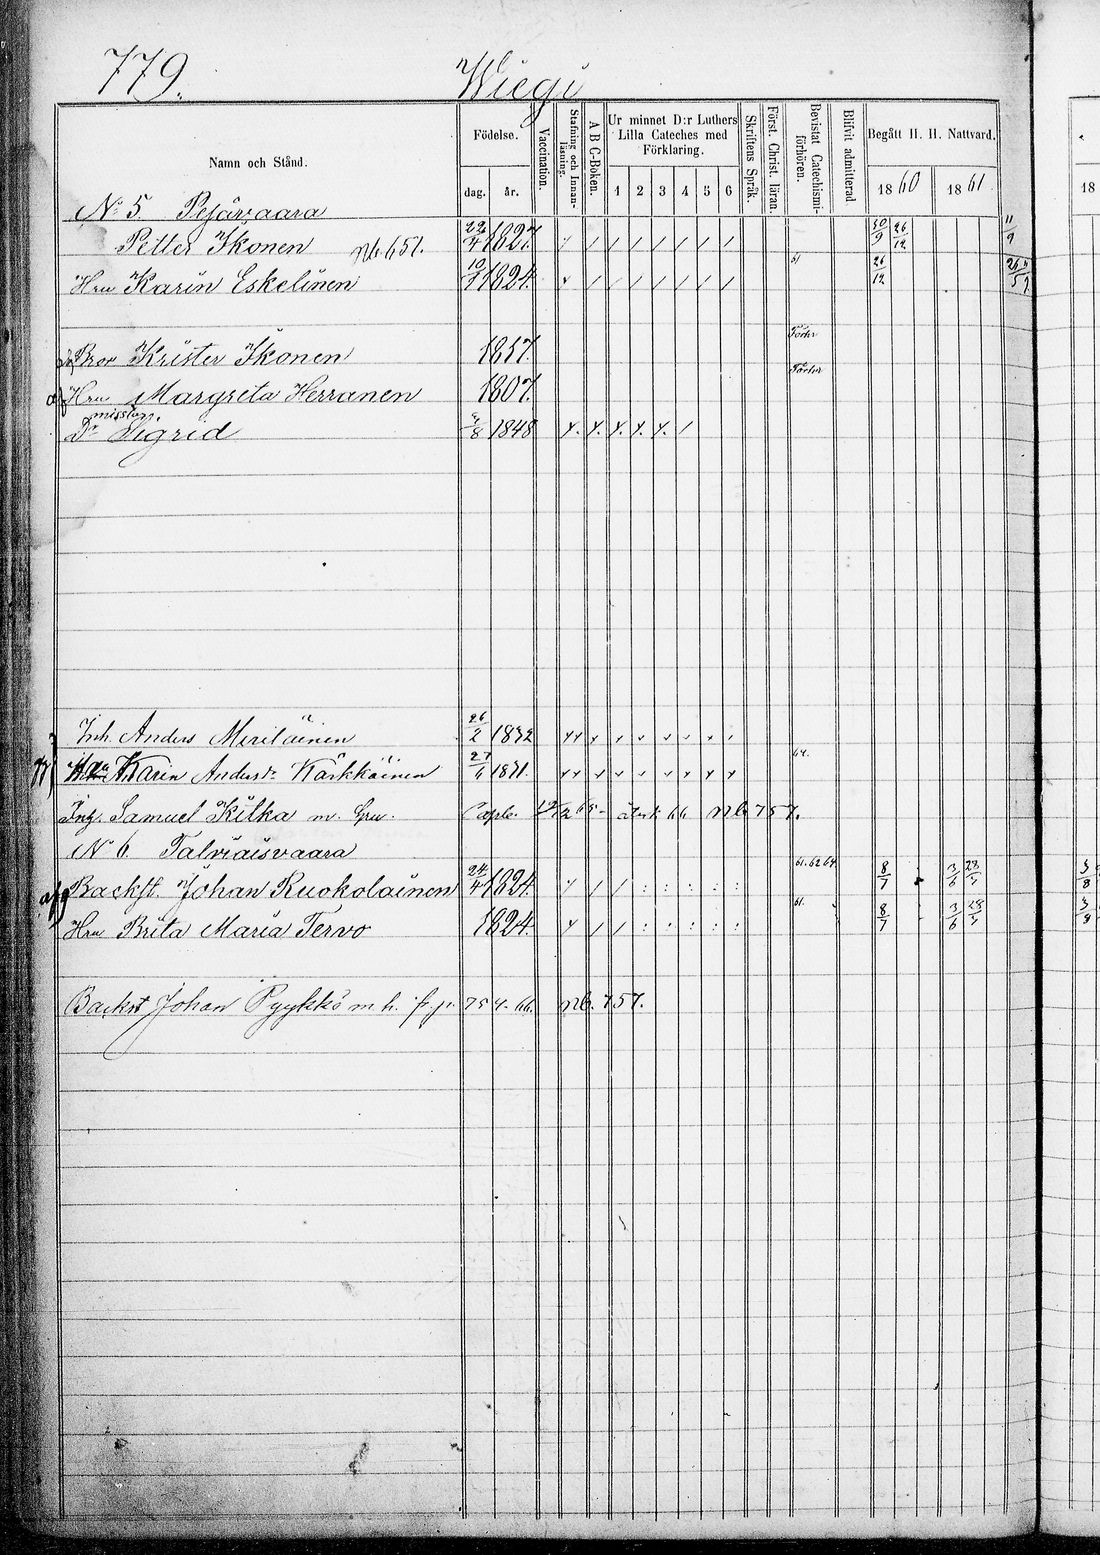 779. Wiegi
Namn och Stånd.
Födelse.
dag. år.
Vaccination.
Stafning och Innanläsning.
A B C-Boken.
Ur minnet D:r Luthers Lilla Cateches med Förklaring.
1 2 3 4 5 6
Skriftens Språk.
Först. Christ. läran.
Bevistat Catechismiförhören.
Blifvit admitterad
Begått H. H. Nattvard.
1860 1861
18
No 5. Pejävaara
Petter Ikonen Nb. 651. 22/4 1827. / / / / / / / / 30/9 26/12 11/9
Hru Karin Eskelinen 10/ 1824. / / / / / / / 61 26/12
Bror Krister Ikonen 1817. Förhr
Hru Margreta Herranen 1807. Förhr
Dr Sigrid /8 1848 x. x. x. x. x. /
Inh. Anders Meriläinen 26/2 1832
Karin Andersdr Kärkkäinen 27/6 1831. 64.
Ing. Samuel Kilka m. Gru. Cople. 19/12 65 66 Nb 757.
No 6. Talviaisvaara
Backst. Johan Ruokolainen 24/4 1824. / / / : : : : : 61. 62 64 8/7 3/6 28/ 3/8
Hru Brita Maria Tervo 1824. x / / : : : : : 61. 8/7 3/6 28/ 3/8
Backst Johan Pyykkö m. h. fr. p. 754. 66. Nb. 757.